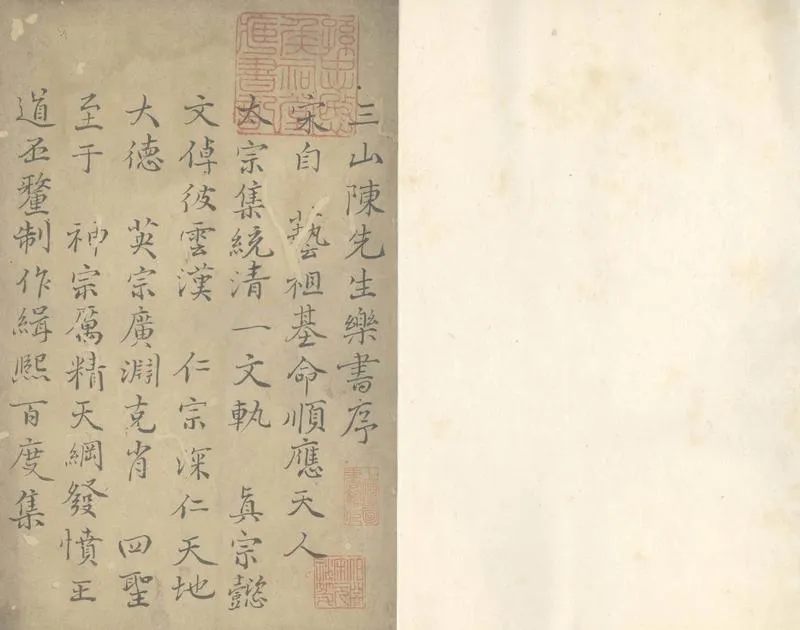 孫忠愍
侯祠堂
藏書記
三山陳先生樂書序
宋自 藝祖基命順應天人
太宗集統清一文軌 眞宗懿
文倬彼雲漢 仁宗深仁天地
大德 英宗廣淵克肖 四聖
至于 神宗厲精天綱發憤王
道丕釐制作緝熙百度集